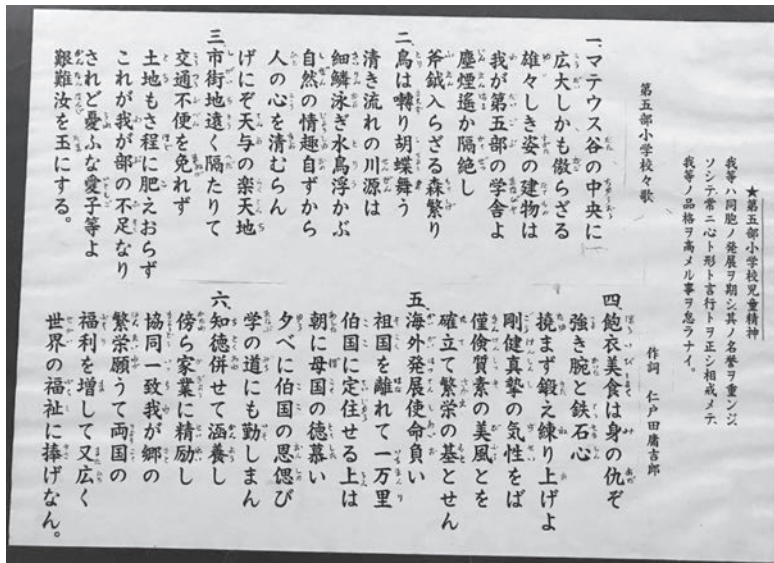 ★第五部小学校児童精神
我等ハ同胞ノ発展ヲ期シ其ノ名誉ヲ重ンジ
ソシテ常ニ心ト形ト言行トヲ正シ相戒メテ
我等ノ品格ヲ高メル事ヲ怠ラナイ。
第五部小学校々歌
作詞 仁戸田庸吉郎
一、マテウス谷の中央に
広大しかも傲らざる
雄々しき姿の建物は
我が第五部の学舎よ
塵煙遙か隔絶し
斧鉞入らざる森繁り
二、鳥は囀り胡蝶舞う
清き流れの川源は
細鱗泳ぎ水鳥浮かぶ
自然の情趣自ずから
人の心を清むらん
げにぞ天与の楽天地
三、市街地遠く隔たりて
交通不便を免れず
土地もさ程に肥えおらず
これが我が部の不足なり
されど憂ふな愛子等よ
艱難汝を玉にする。
四、飽衣美食は身の仇ぞ
強き腕と鉄石心
撓まず鍛え練り上げよ
剛健真摯の気性をば
僅倹質素の美風とを
確立て繁栄の基とせん
五、海外発展使命負い
祖国を離れて一万里
伯国に定住せる上は
朝に母国の徳慕い
夕べに伯国の恩偲び
学の道にも勤しまん
六、知徳併せて涵養し
傍ら家業に精励し
協同一致我が郷の
繁栄願うて両国の
福利を増して又広く
世界の福祉に捧げなん。